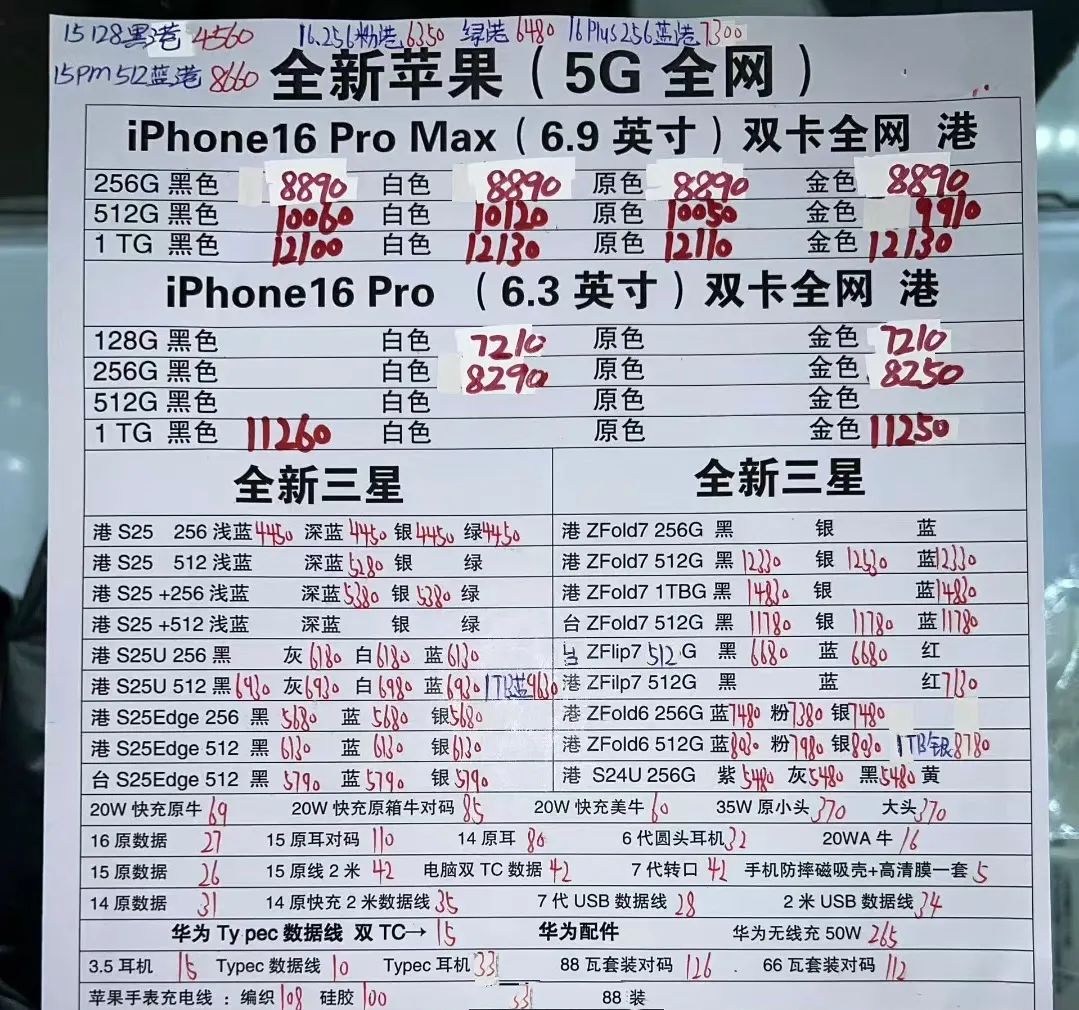 15 128黑港 4560 16.256粉港 6350 绿港 6480 16Plus256蓝港 7300
15pm 512蓝港 8660
全新苹果（5G 全网）
iPhone16 Pro Max（6.9 英寸）双卡全网 港
256G 黑色 8890 白色 8890 原色 8890 金色 8890
512G 黑色 10060 白色 10120 原色 10050 金色 9910
1 TG 黑色 12100 白色 12130 原色 12110 金色 12130
iPhone16 Pro （6.3 英寸）双卡全网 港
128G 黑色 白色 7210 原色 金色 7210
256G 黑色 白色 8290 原色 金色 8250
512G 黑色 白色 原色 金色
1 TG 黑色 11260 白色 原色 金色 11250
全新三星
港 S25 256 浅蓝 4450 深蓝 4450 银 4450 绿 4450
港 S25 512 浅蓝 深蓝 5280 银 绿
港 S25 +256 浅蓝 深蓝 5380 银 5380 绿
港 S25 +512 浅蓝 深蓝 银 绿
港 S25U 256 黑 灰 6180 白 6180 蓝 6130
港 S25U 512 黑 6930 灰 6930 白 6980 蓝 6930 1TB蓝 9630
港 S25Edge 256 黑 5680 蓝 5680 银 5680
港 S25Edge 512 黑 6130 蓝 6130 银 6130
台 S25Edge 512 黑 5790 蓝 5790 银 5790
全新三星
港 ZFold7 256G 黑 银 蓝
港 ZFold7 512G 黑 12330 银 12530 蓝 12330
港 ZFold7 1TBG 黑 14830 银 蓝 14830
台 ZFold7 512G 黑 11780 银 11780 蓝 11780
台 ZFlip7 512 G 黑 6680 蓝 6680 红
港 ZFilp7 512G 黑 蓝 红 7130
港 ZFold6 256G 蓝 7480 粉 7380 银 7480
港 ZFold6 512G 蓝 8030 粉 7980 银 8030 1TB银 8780
港 S24U 256G 紫 5480 灰 5480 黑 5480 黄
20W 快充原牛 69 20W 快充原箱牛对码 85 20W 快充美牛 60 35W 原小头 370 大头 370
16 原数据 27 15 原耳对码 110 14 原耳 80 6 代圆头耳机 32 20WA 牛 16
15 原数据 26 15 原线 2 米 42 电脑双 TC 数据 42 7 代转口 42 手机防摔磁吸壳+高清膜一套 5
14 原数据 31 14 原快充 2 米数据线 35 7 代 USB 数据线 28 2 米 USB 数据线 34
华为 Ty pec 数据线 双 TC→ 15 华为配件 华为无线充 50W 265
3.5 耳机 15 Typec 数据线 10 Typec 耳机 33 88 瓦套装对码 126 66 瓦套装对码 112
苹果手表充电线 ：编织 108 硅胶 100 88 装